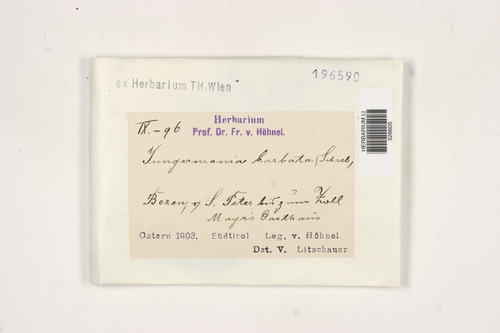 196590
ex Herbarium TH.Wien
HERBARIUM LI
IX.-96
Herbarium
Prof. Dr. Fr. v. Höhnel.
Jungermania barbata (Schreb,
Bozen, v. S. Peter bis zum Zoll
Mayrs Gasthaus
Ostern 1903. Südtirol Leg. v. Höhnel
Det. V. Litschauer